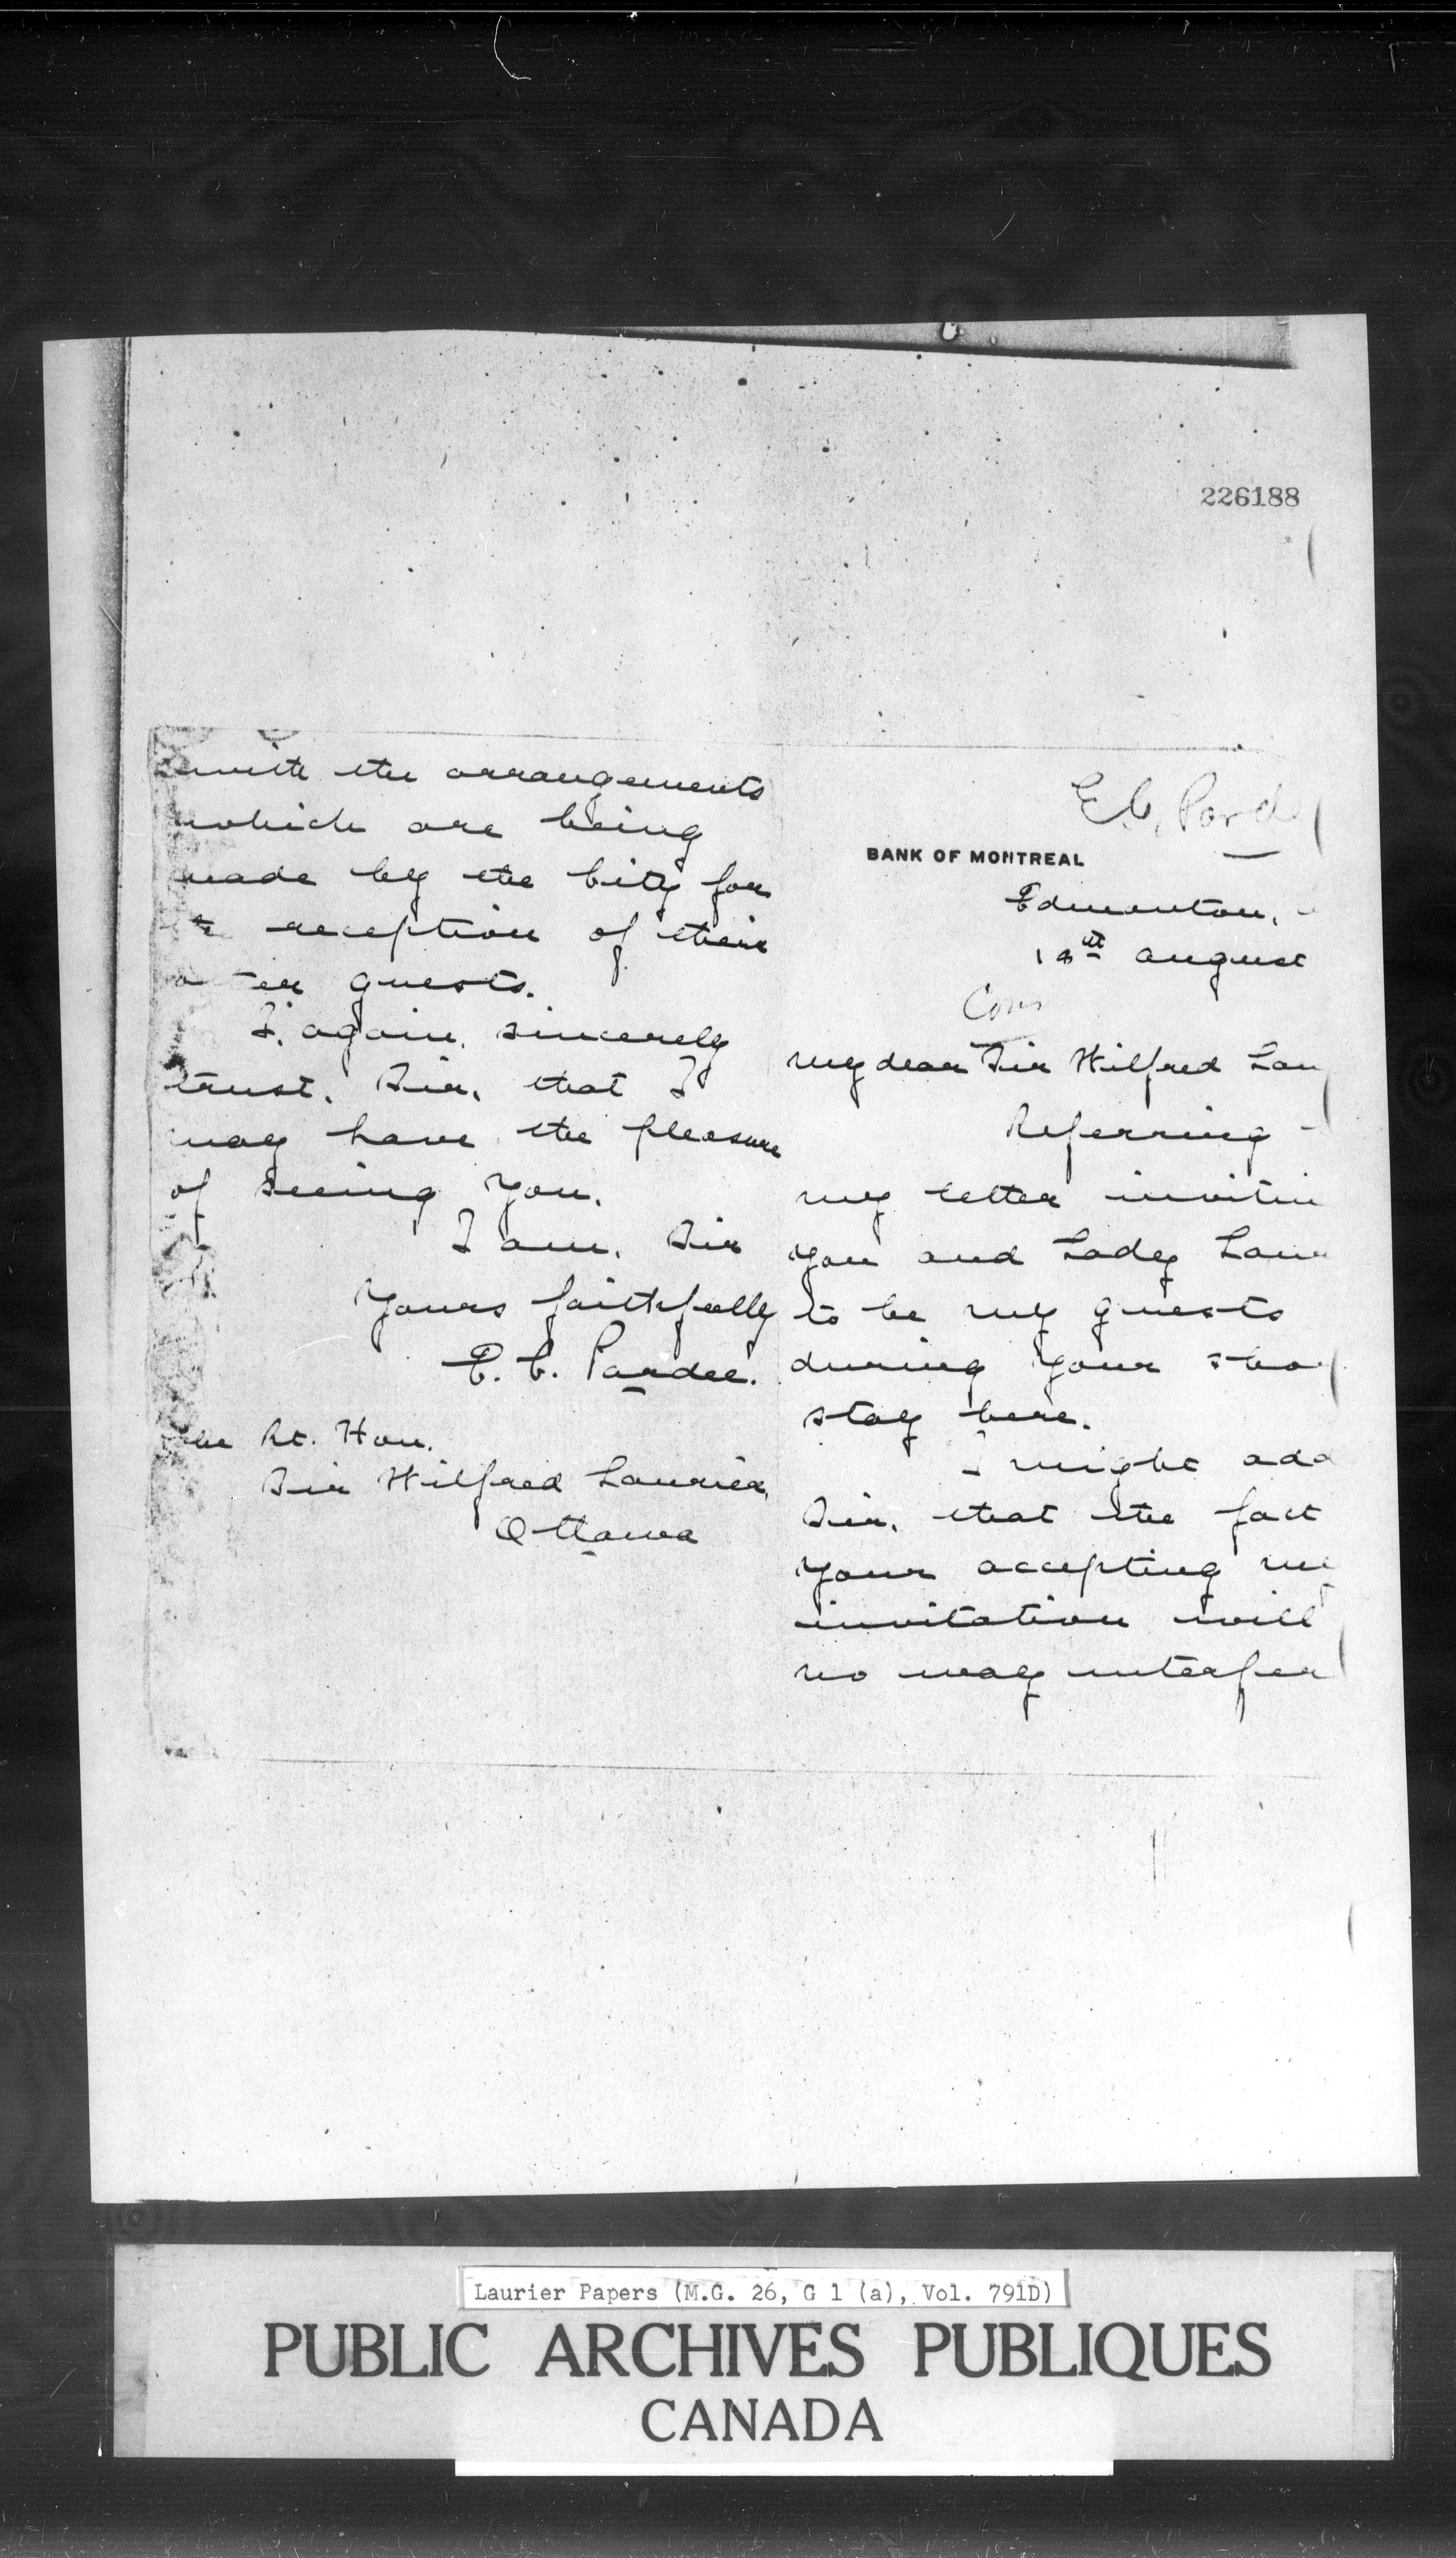 226188
E.C. Parde
BANK OF MONTREAL
Edmonton,
18th August
My dear Sir Wilfred Lau
Referring
my letter invitin
you and Lady Laur
to be my guests
during your sho
stay here.
I might add
Sir, that the fact
your accepting my
invitation will
no way interfer
with the arrangements
which are being
made by the City for
the reception of their
guests.
I, again, sincerely
trust, Sir, that I
may have the pleasure
of seeing you.
I am, Sir
Yours faithfully
E. C. Pardee.
The Rt. Hon.
Sir Wilfred Laurier,
Ottawa
Laurier Papers (M.G. 26, G 1 (a), Vol. 791D)
PUBLIC ARCHIVES PUBLIQUES
CANADA